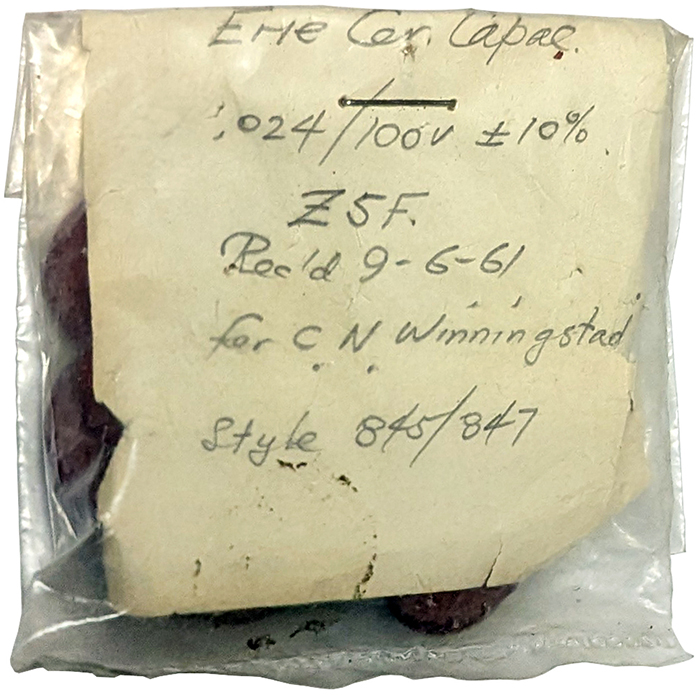 Erie Cer. Capac.
.024/100V ±10%
Z5F.
Rec'd 9-6-61
for C. N. Winningstad
Style 845/847